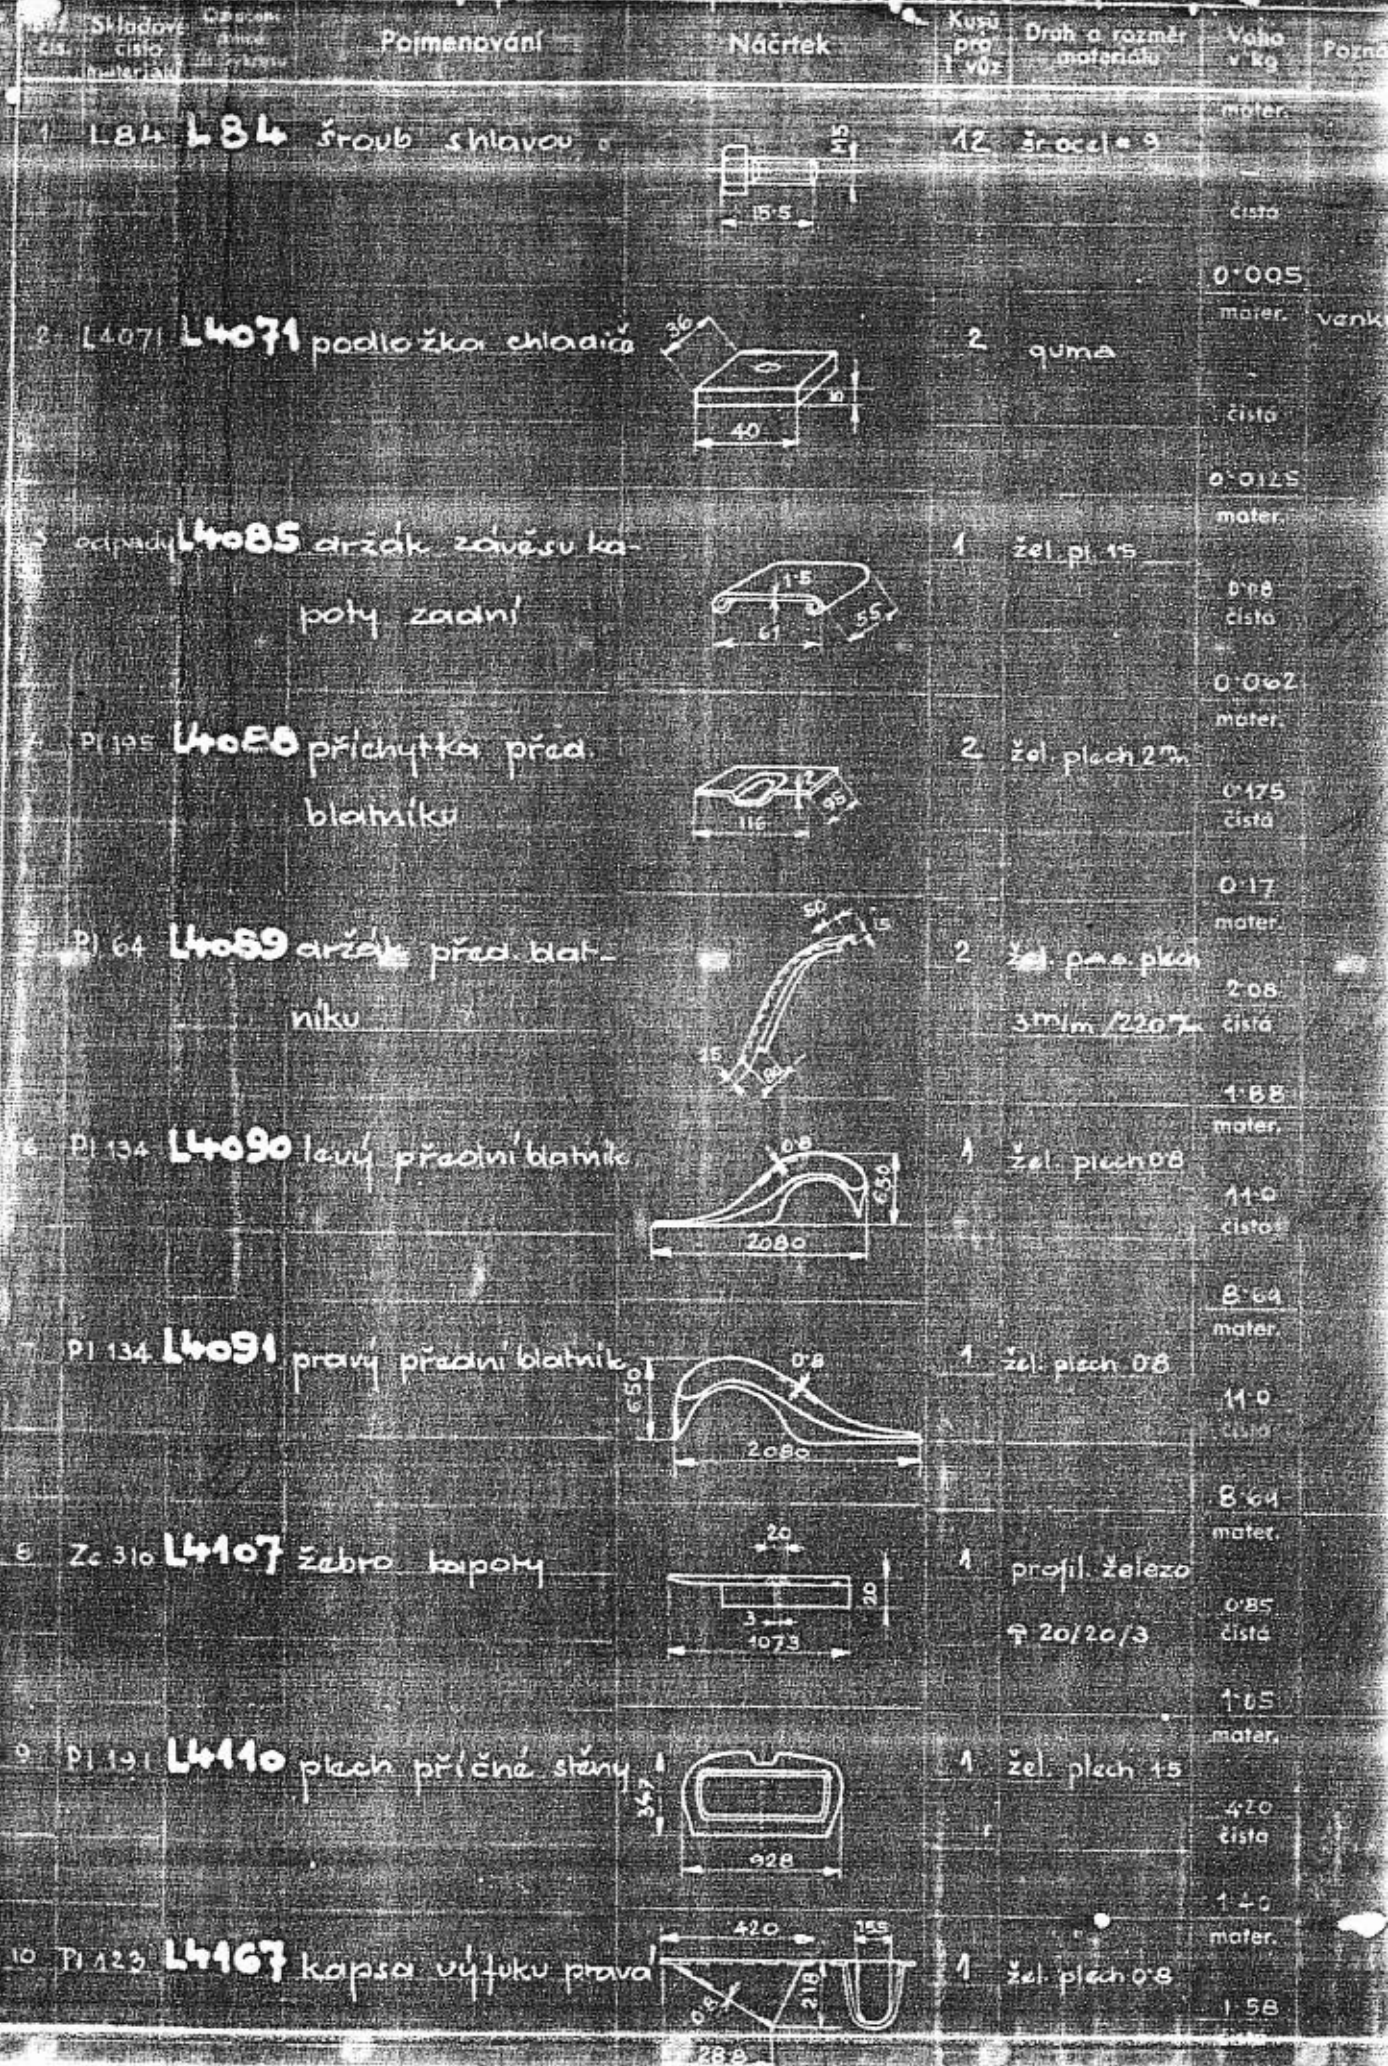 čís.
Skladové
číslo
materiálu
Pojmenování
Náčrtek
Kusů
pro
1 vůz
Druh a rozměr
materiálu
Váha
v kg
Pozn
1 L84 L84 šroub s hlavou
M5
15·5
12 šr. ocel 9
mater.
-
čistá
0·005
2 L4071 L4071 podložka chladiče
36
40
2 guma
mater.
-
čistá
0·0125
3 odpady L4085 držák závěsu ka-
poty zadní
1·5
61
55
1 žel. pl. 15
mater.
0·08
čistá
0·062
Pl 195 L4088 příchytka před.
blatníku
2
116
95
2 žel. plech 2
mater.
0·175
čistá
0·17
Pl 64 L4089 držák před. blat-
níku
50
15
80
2 žel. plech
3 m/m /220
mater.
2·08
čistá
1·88
6 Pl 134 L4090 levý přední blatník
0·8
650
2080
1 žel. plech 0·8
mater.
11·0
čistá
8·69
Pl 134 L4091 pravý přední blatník
650
0·8
2080
1 žel. plech 0·8
mater.
11·0
čistá
8·69
8 Zc 310 L4107 žebro kapoty
20
20
3
1073
1 profil. železo
20/20/3
mater.
0·85
čistá
1·05
9 Pl 191 L4110 plech příčné stěny
347
928
1 žel. plech 15
mater.
4·20
čistá
1·40
10 Pl 123 L4167 kapsa výfuku pravá
420
155
218
0·8
28·8
1 žel. plech 0·8
mater.
1·58